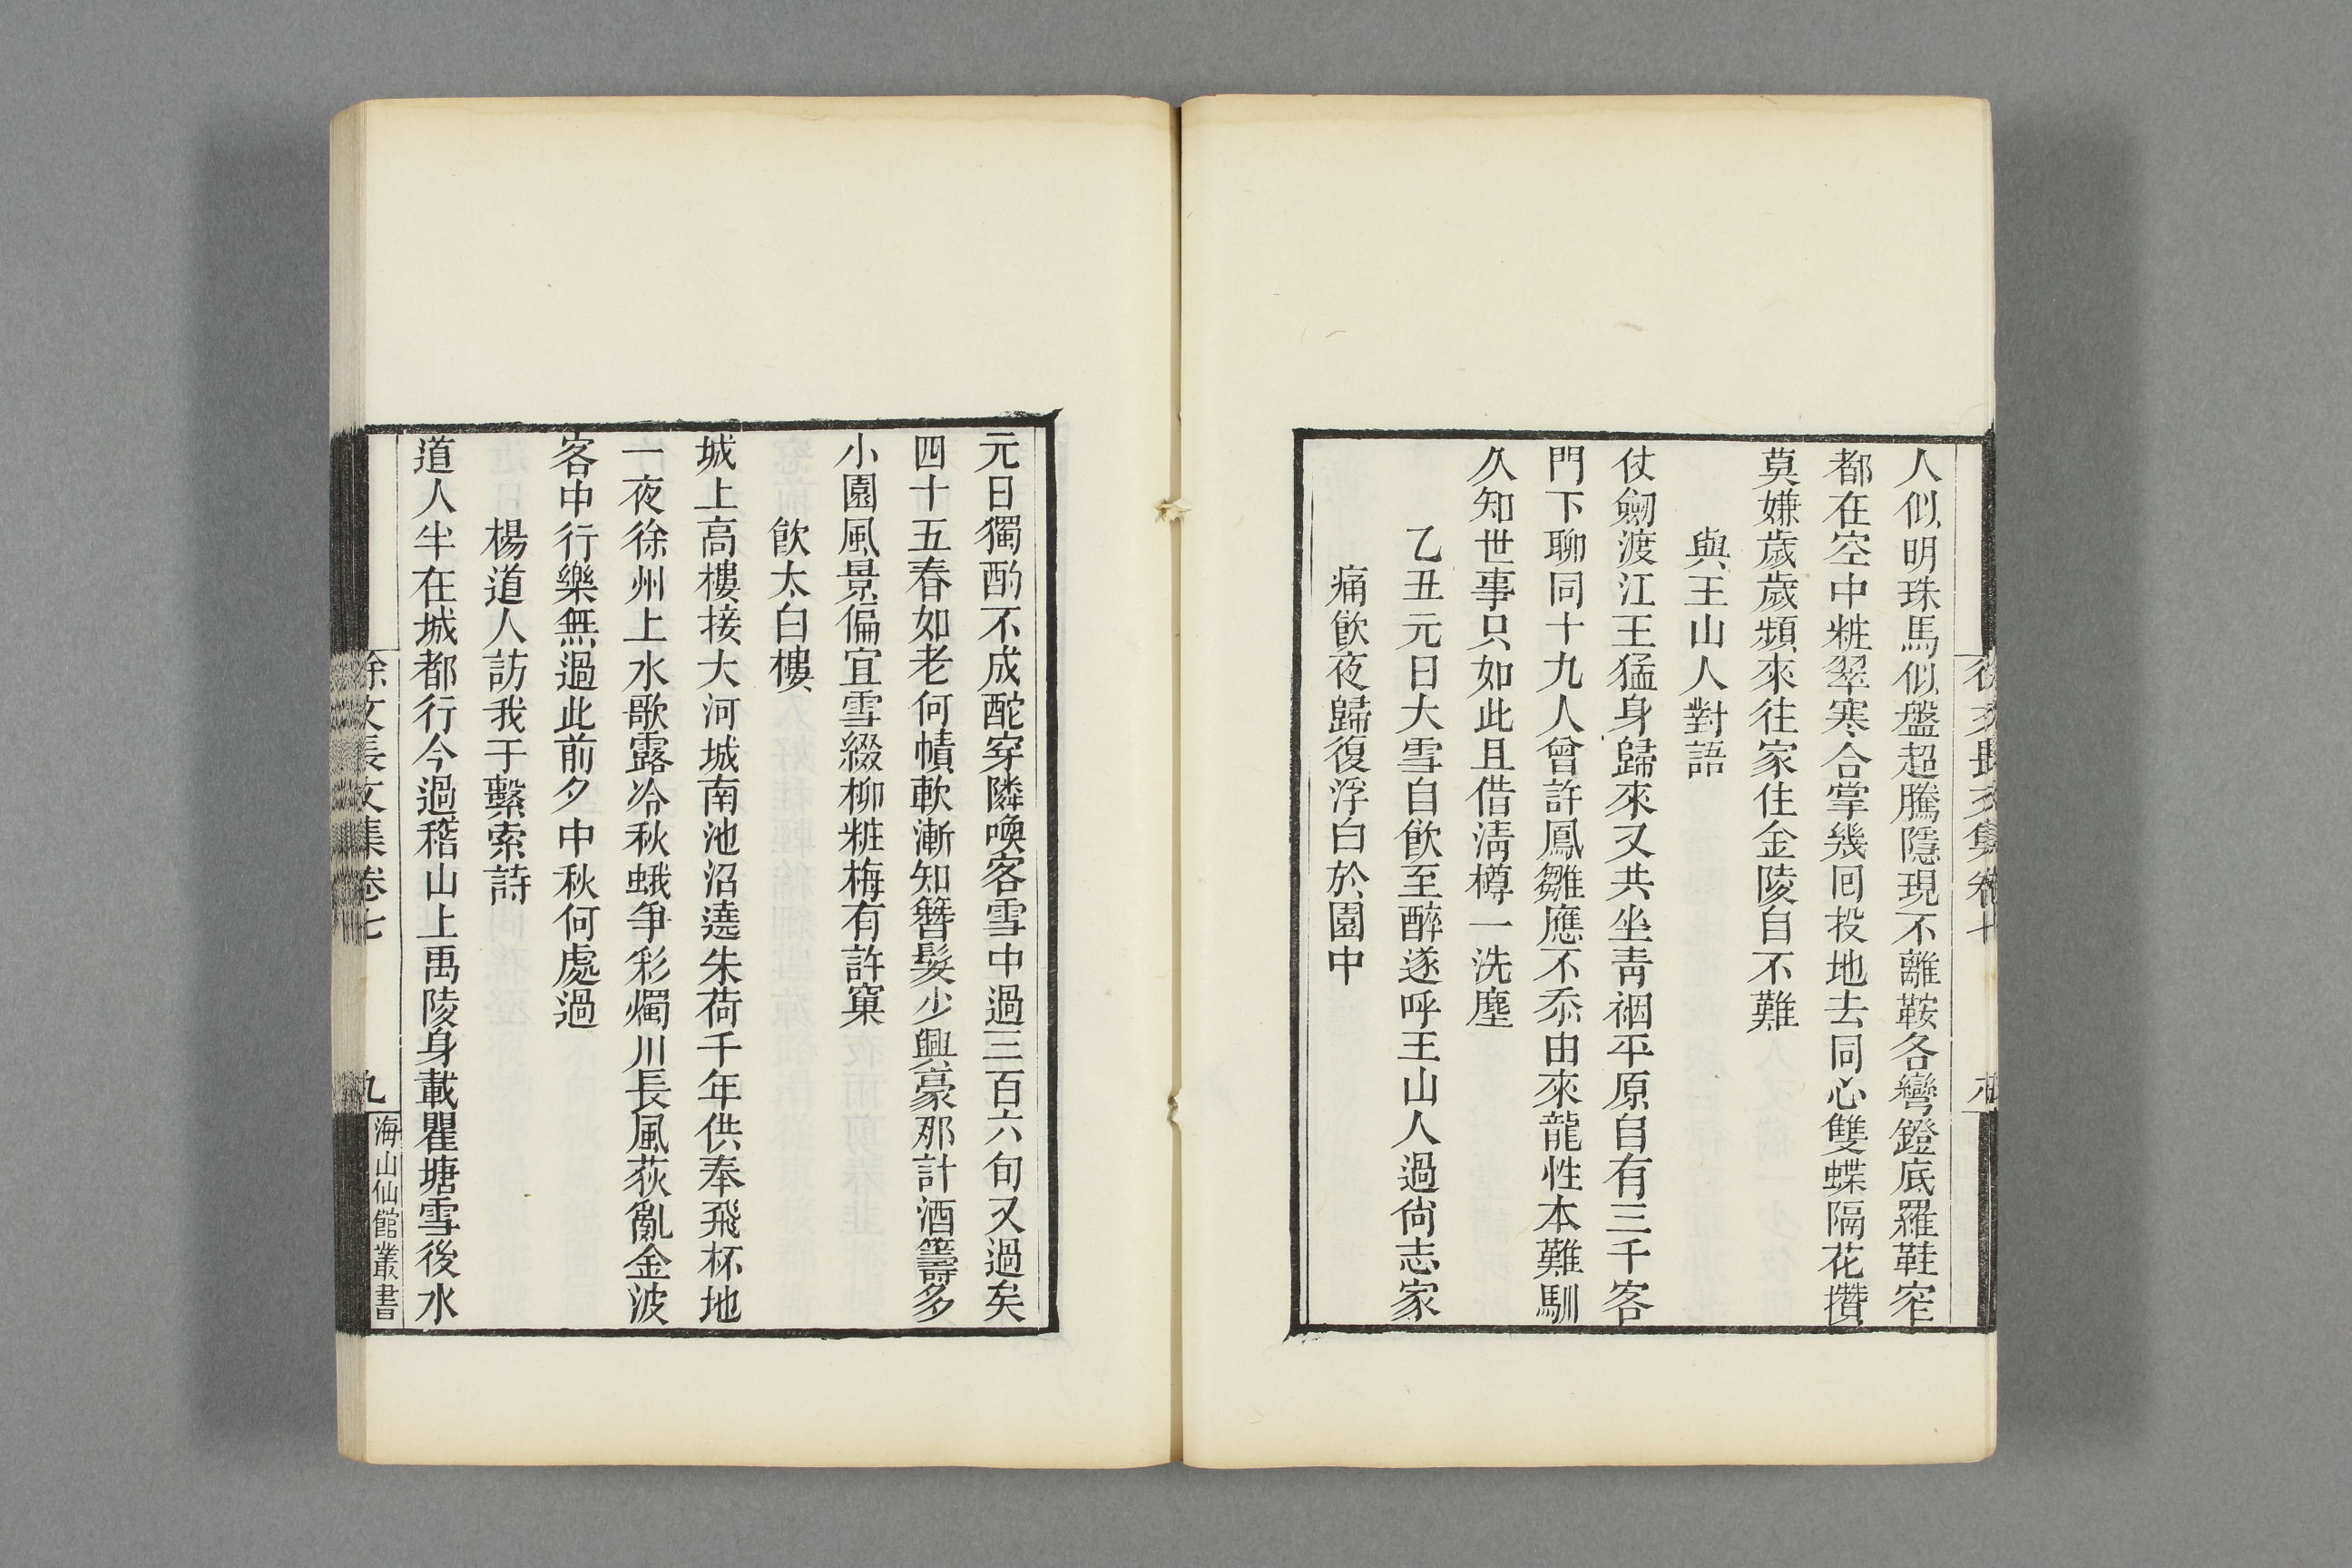 人似明珠馬似盤超騰隱現不離鞍各彎鐙底羅鞋窄
都在空中粧翠寒合掌幾回投地去同心雙蝶隔花攢
莫嫌歲歲頻來往家住金陵自不難
與王山人對語
仗劒渡江王猛身歸來又共坐靑裀平原自有三千客
門下聊同十九人曾許鳳雛應不忝由來龍性本難馴
久知世事只如此且借淸樽一洗塵
乙丑元日大雪自飮至醉遂呼王山人過尙志家
痛飮夜歸復浮白於園中
元日獨酌不成酡穿隣喚客雪中過三百六旬又過矣
四十五春如老何幘軟漸知簪髮少興豪那計酒籌多
小園風景偏宜雪綴柳粧梅有許窠
飮太白樓
城上高樓接大河城南池沼遶朱荷千年供奉飛杯地
一夜徐州上水歌露冷秋蛾爭彩燭川長風荻亂金波
客中行樂無過此前夕中秋何處過
楊道人訪我于繫索詩
道人半在城都行今過稽山上禹陵身載瞿塘雪後水
徐文長文集卷七
九
海山仙館叢書